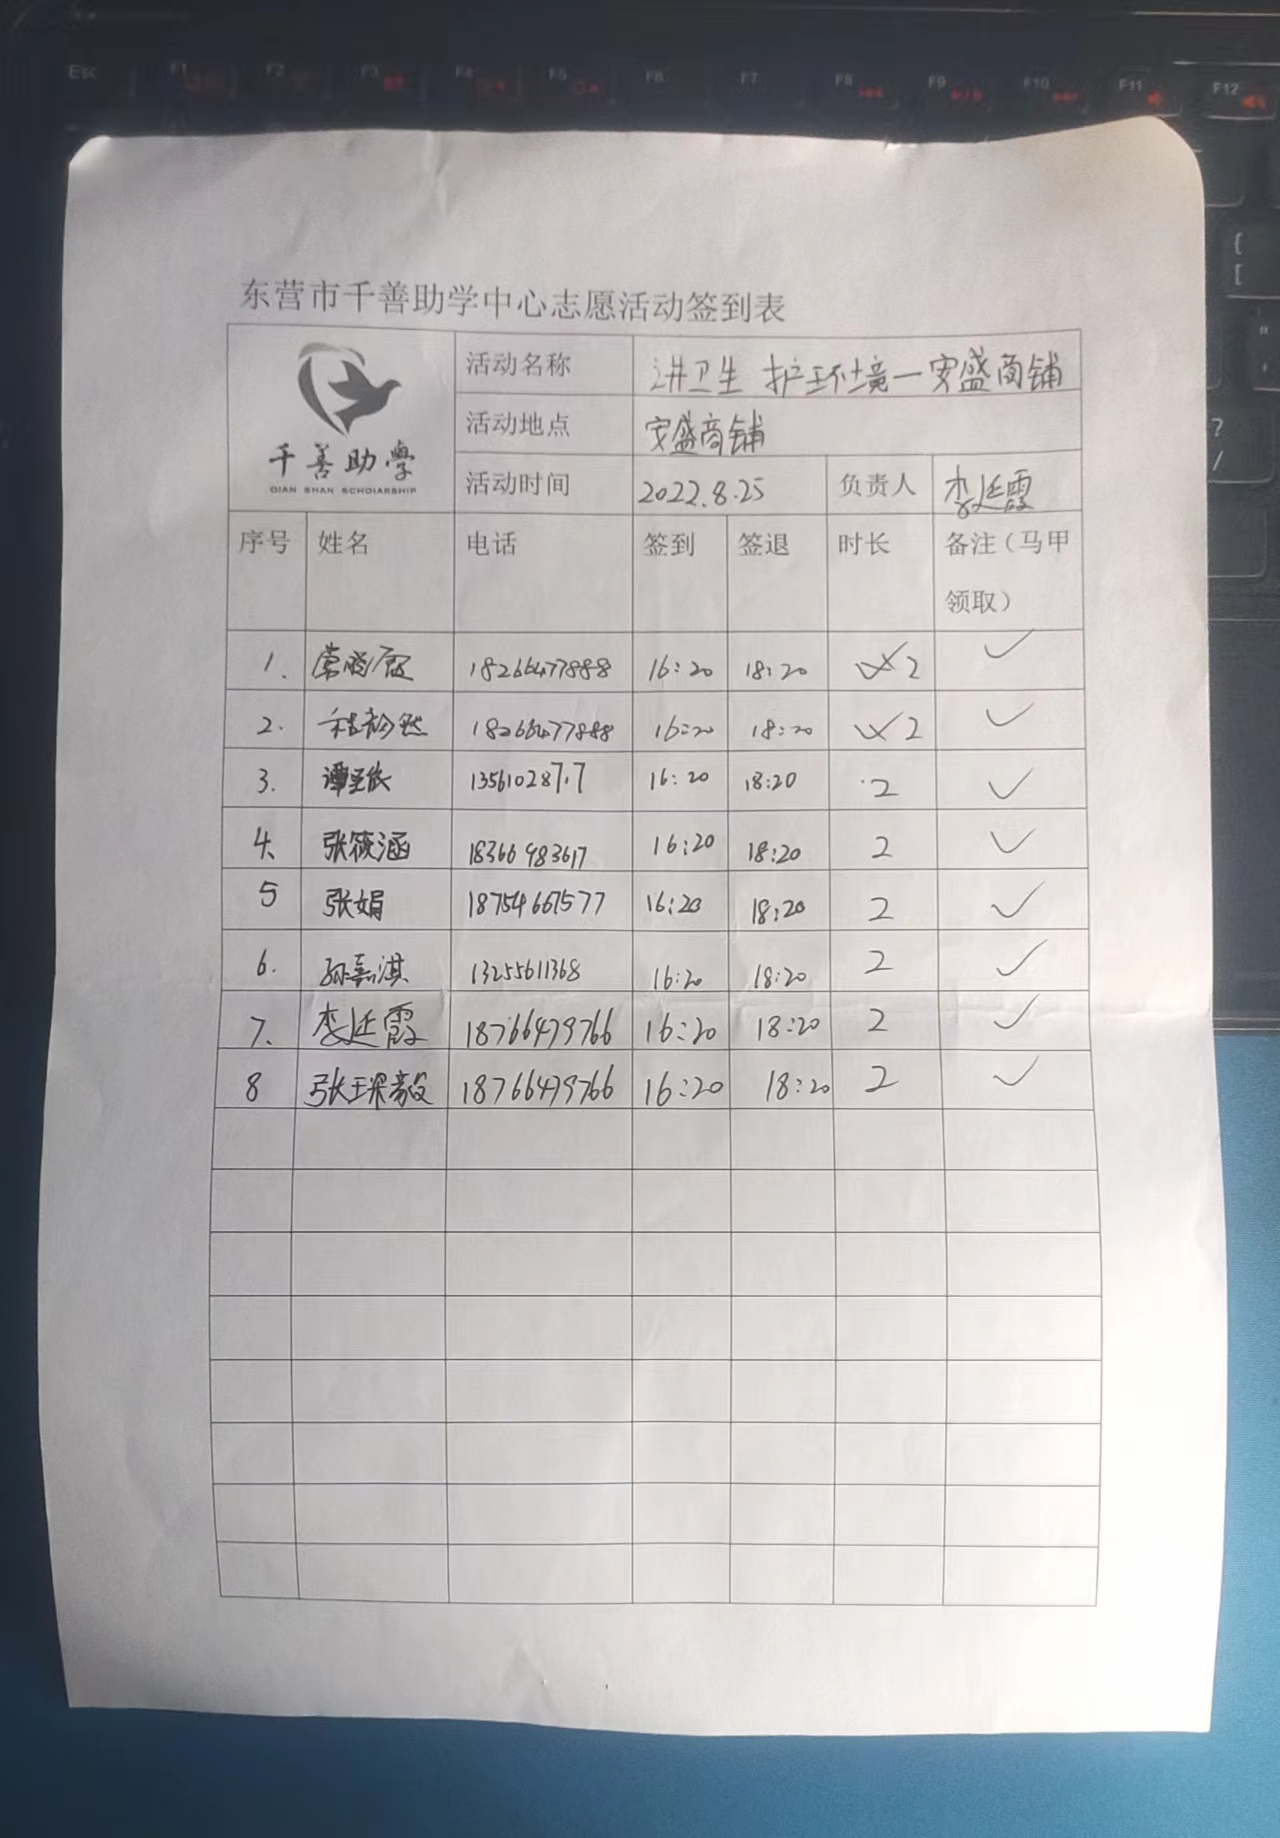 Esc F1 F2 F3 F4 F5 F6 F7 F8 F9 F10 F11 F12
{
[
"
?
/
东营市千善助学中心志愿活动签到表
千善助学
QIAN SHAN SCHOLARSHIP
活动名称 讲卫生 护环境一安盛商铺
活动地点 安盛商铺
活动时间 2022.8.25 负责人 李廷霞
序号 姓名 电话 签到 签退 时长 备注（马甲
领取）
1. 常晓霞 18266477888 16:20 18:20 2 ✓
2. 18266477888 16:20 18:20 2 ✓
3. 谭 16:20 18:20 2 ✓
4、 张筱涵 18366983617 16:20 18:20 2 ✓
5 张娟 18754667577 16:20 18:20 2 ✓
6. 孙嘉淇 13255611368 16:20 18:20 2 ✓
7、 李廷霞 18766479766 16:20 18:20 2 ✓
8 张琛毅 18766479766 16:20 18:20 2 ✓